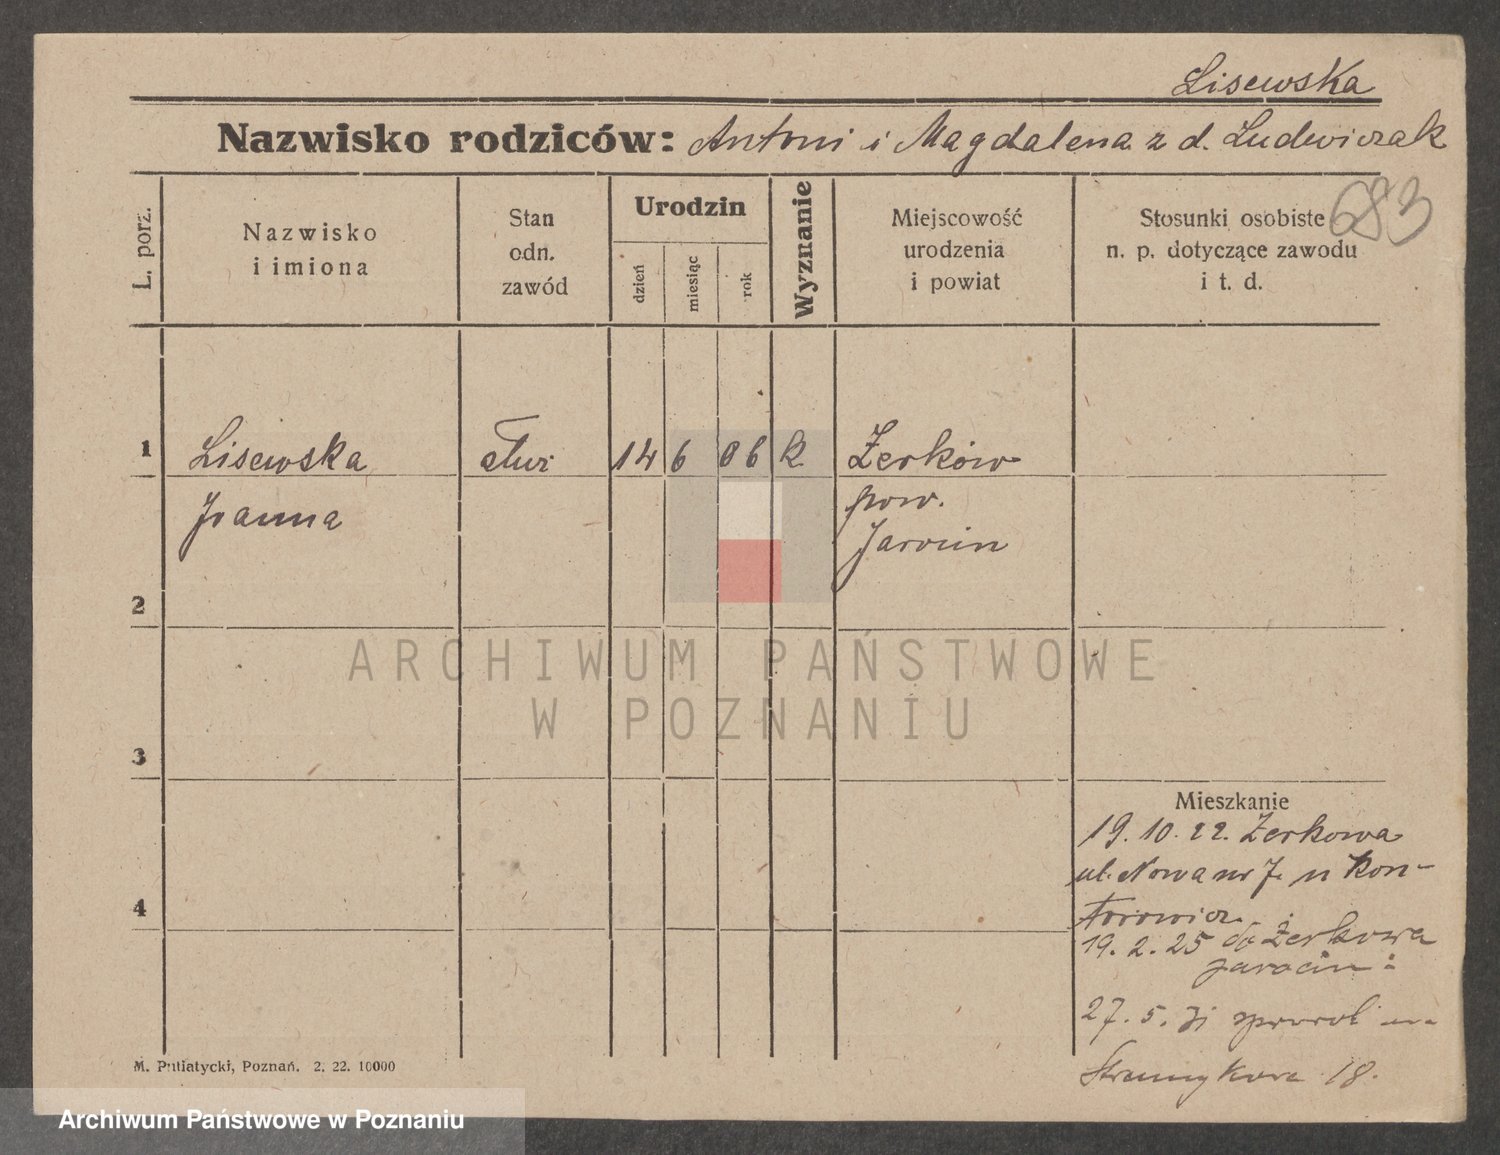 Lisewska
Nazwisko rodziców: Antoni i Magdalena z d. Ludwiczak
683
L. porz.
Nazwisko
i imiona
Stan
odn.
zawód
Urodzin
dzień
miesiąc
rok
Wyznanie
Miejscowość
urodzenia
i powiat
Stosunki osobiste
n. p. dotyczące zawodu
i t. d.
1
Lisewska
14
6
06
k
Żerków
Joanna
pow.
Jarocin
2
ARCHIWUM PAŃSTWOWE
W POZNANIU
3
Mieszkanie
19. 10. 22. Żerkowa
ul. Nowa nr 7. u Kon-
torowicz
4
19. 2. 25 do Żerkowa
Jarocin
27. 5. 31
18.
M. Putiatycki, Poznań. 2. 22. 10000
Archiwum Państwowe w Poznaniu